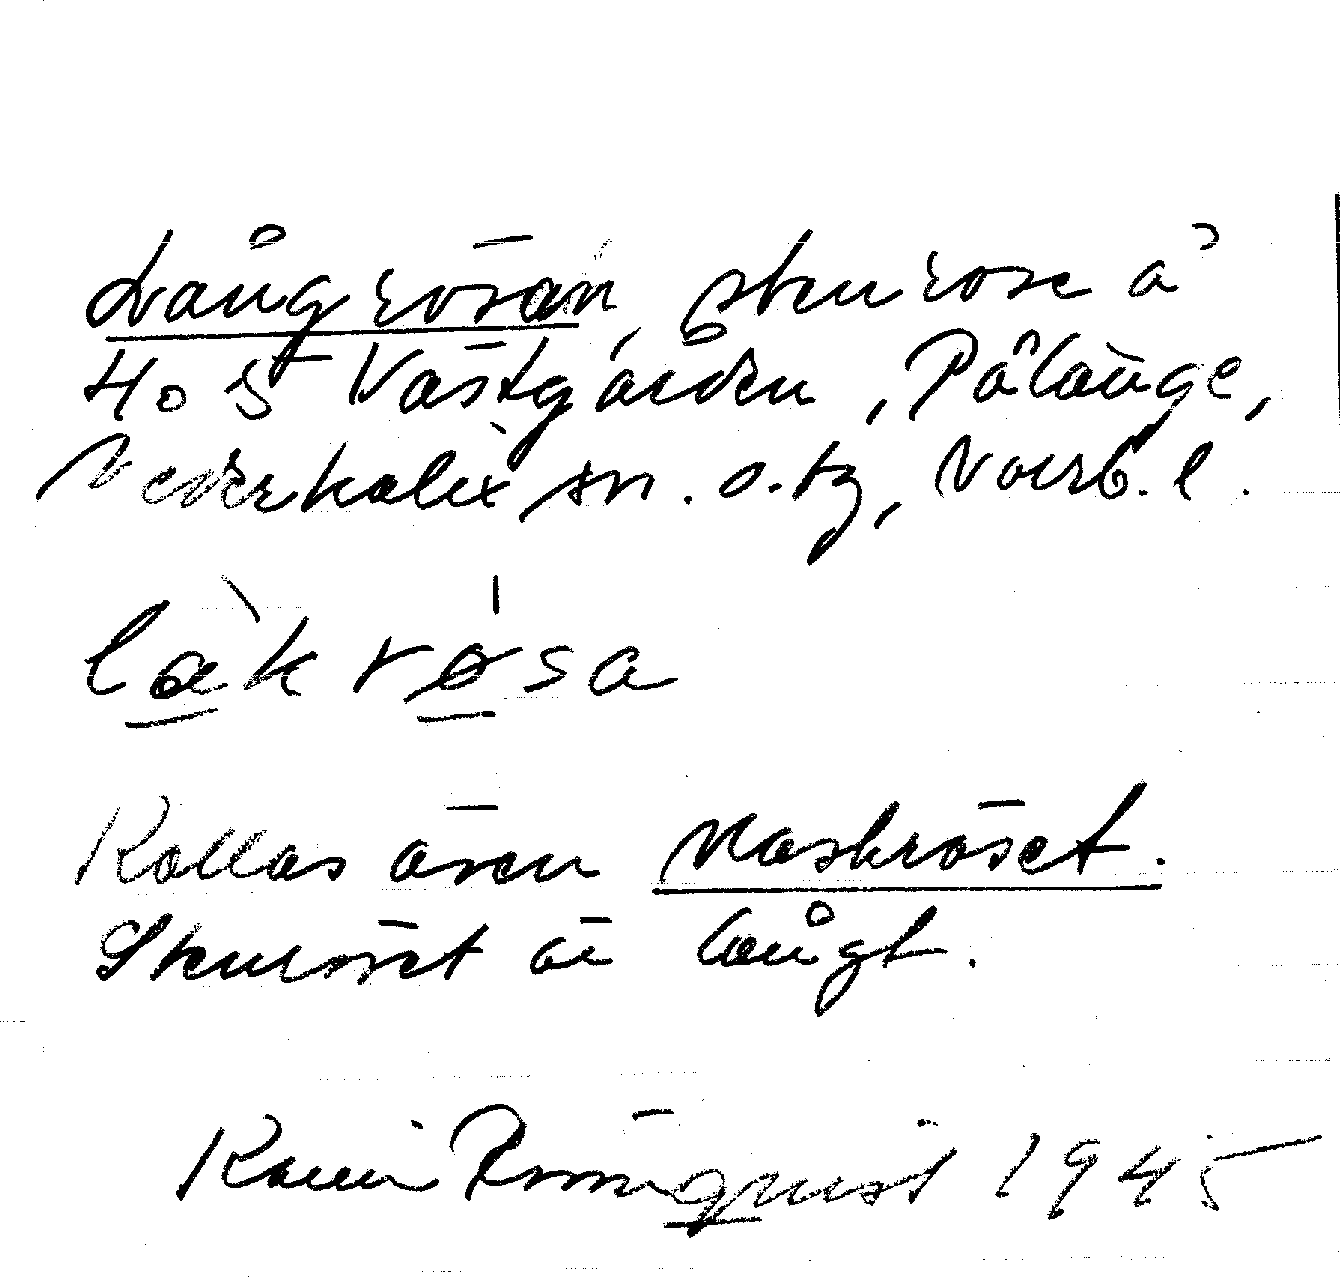 Långrösan, stenröse å
4 o 5 Västgården, Pålänge,
Nederkalix sn. o. tg, Norrb. l.
låkrøsa
Kallas även Naskröset.
Stenröset är långt.
Karin Rönnquist 1945